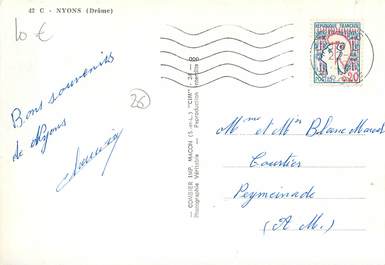 42 C - NYONS (Drôme)
10 €
26
Bons souvenirs
de Nyons
COMBIER IMP. MACON (S.-&-L.) "CIM"
Photographie Véritable - Reproduction interdite
REPUBLIQUE FRANCAISE
POSTES 0,20
Mme et Mr Blanc Marcel
Courtier
Peymeinade
(A. M.)